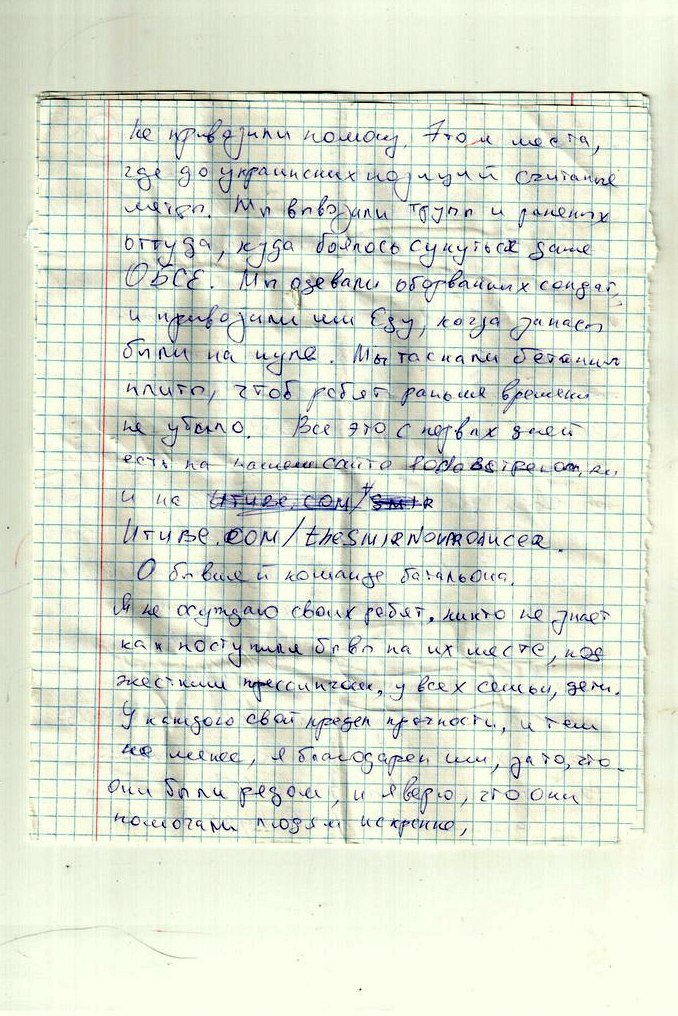 не привозили помощь. Это м места,
где до украинских позиций считаные
метры. Мы вывозили трупы и раненых
оттуда, куда боялось сунуться даже
ОБСЕ. Мы одевали оборванных солдат,
и привозили им Еду, когда запасы
были на нуле. Мы таскали бетонные
плиты, чтоб ребят раньше времени
не убыло. Все это с первых дней
есть на нашем сайте
и на UTUBE.COM/ SMIR
UTUBE.COM/theSMIRNOVPRODUCER.
О бывшей команде батальона.
Я не осуждаю своих ребят, никто не знает
как поступил бы на их месте, под
жестким прессингом, у всех семьи, дети.
У каждого свой предел прочности, и тем
не менее, я благодарен им, за то, что
они были рядом, и я верю, что они
помогали людям искренне,